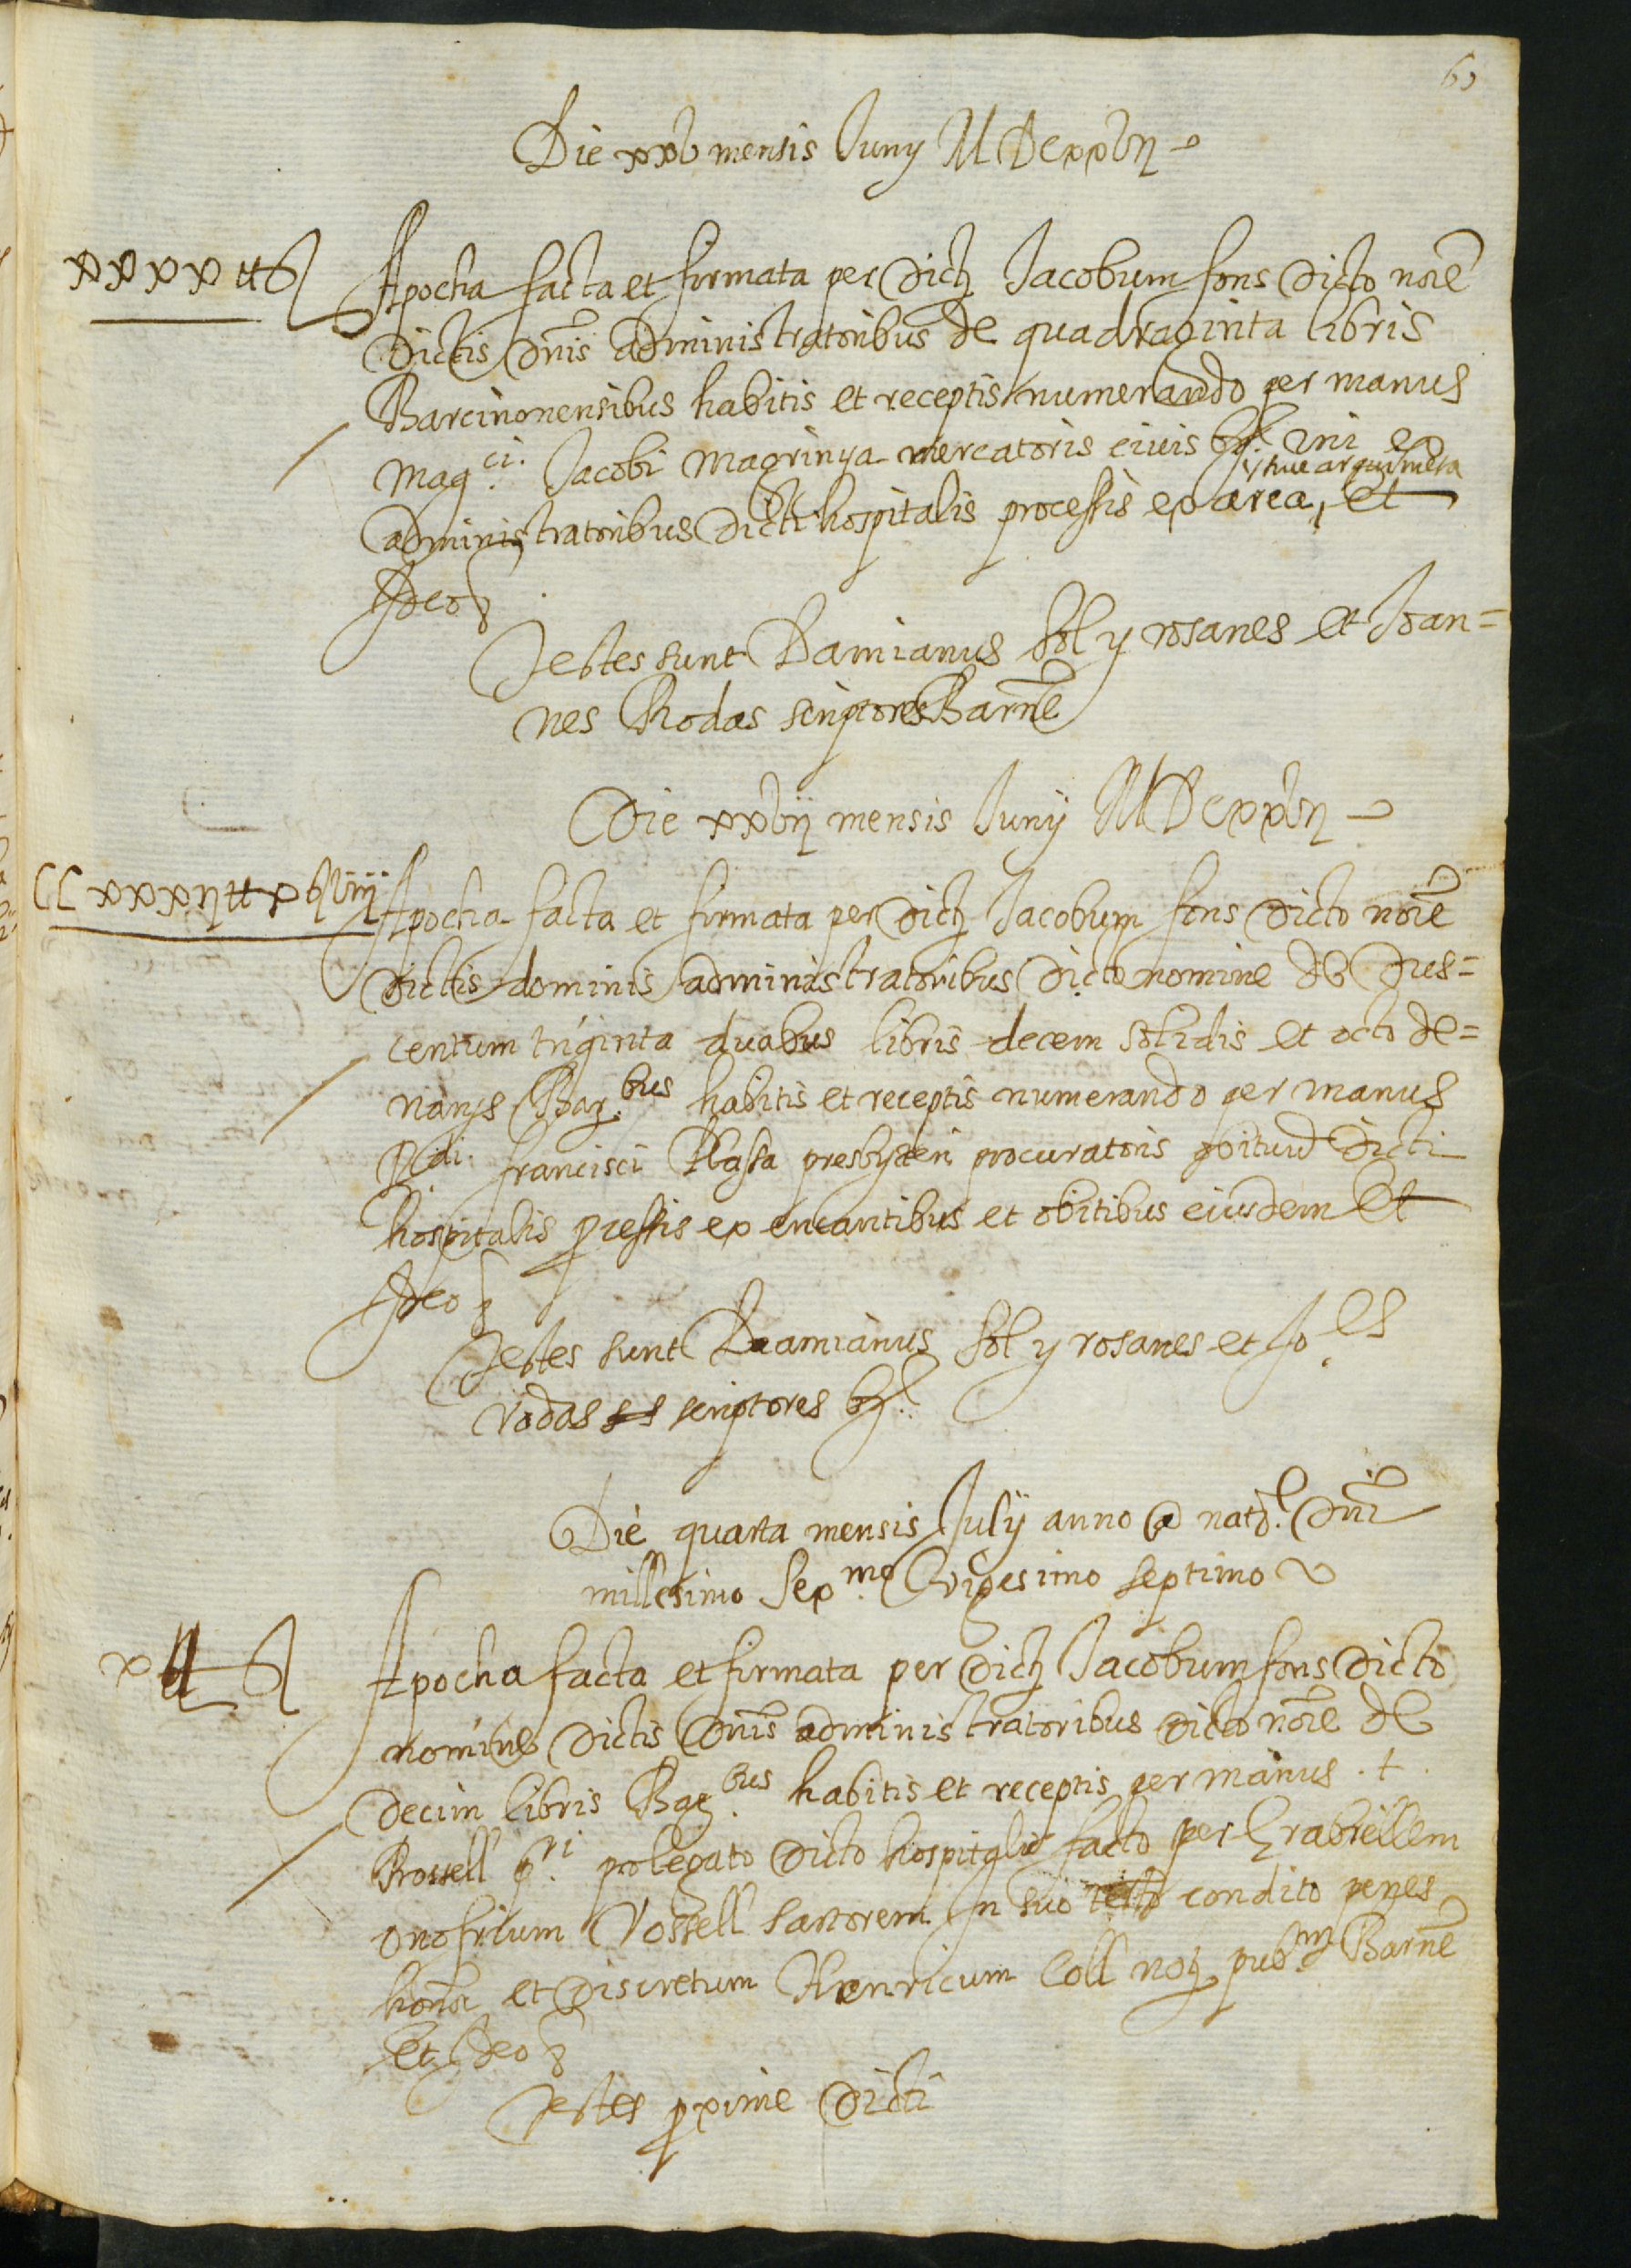 69
Die xxv mensis Juny MDCxxvij
xxxx ℔ s
Apocha facta et firmata per dictũ Jacobum fons dicto noĩe
dictis dnĩs administratoribus de quadraginta libris
Barcinonensibus habitis et receptis numerando per manus
mag.ci Jacobi Magrinya mercatoris civis uni ex
administratoribus dicti hospitalis processis ex arca, et
Ideo
Testes sunt Damianus Sol y rosanes et Joan=
nes Rodas scriptores Barñe
Die xxvij mensis Juny MDCxxvij
CCxxxij ℔ x s viij
Apocha facta et firmata per dictũ Jacobum fons dicto noĩe
dictis dominis administratoribus dicto nomine de dues=
centum triginta duabus libris decem solidis et octo de=
narijs Bar.bus habitis et receptis numerando per manus
R.di francisci Plassa presbyteri procuratoris dicti
hospitalis pressis ex encantibus et obitibus eiusdem Et
Ideo
Testes sunt Damianus Sol y rosanes et Jo.es
rodas scriptores
Die quarta mensis July anno a nat.e dnĩ
millesimo Sex.mo vigesimo septimo
x ℔ s
Apocha facta et firmata per dictũ Jacobum fons dicto
nomine dictis dnĩs administratoribus dicto noĩe de
decim libris Bar.bus habitis et receptis per manus . +
Rossell p.ri pro legato dicto hospitalis facto per Grabiellem
onofrium Rossell sartorem In suo testo condito penes
honor et discretum Henricum Coll notũ pub.m Barñe
et Ideo
Testes proxime dicti